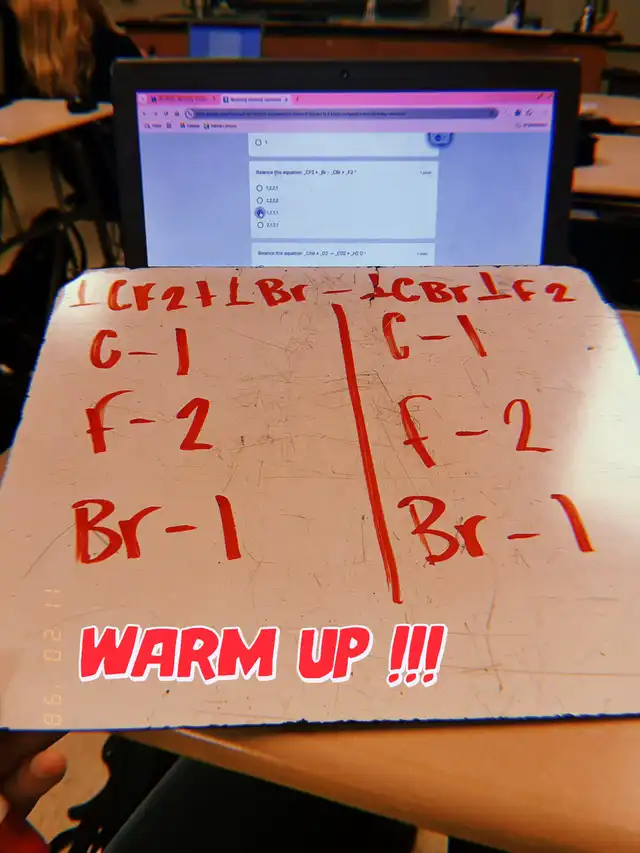 1
Balance this equation: _CF2 + _Br - _CBr + _F2 *
1 point
1,2,2,1
2,2,2,2
1,1,1,1
2,1,2,1
Balance this equation: _CH4 + _O2 → _CO2 + _H2O *
1CF2+1Br-1CBr1F2
C-1 C-1
F-2 F-2
Br-1 Br-1
WARM UP !!!